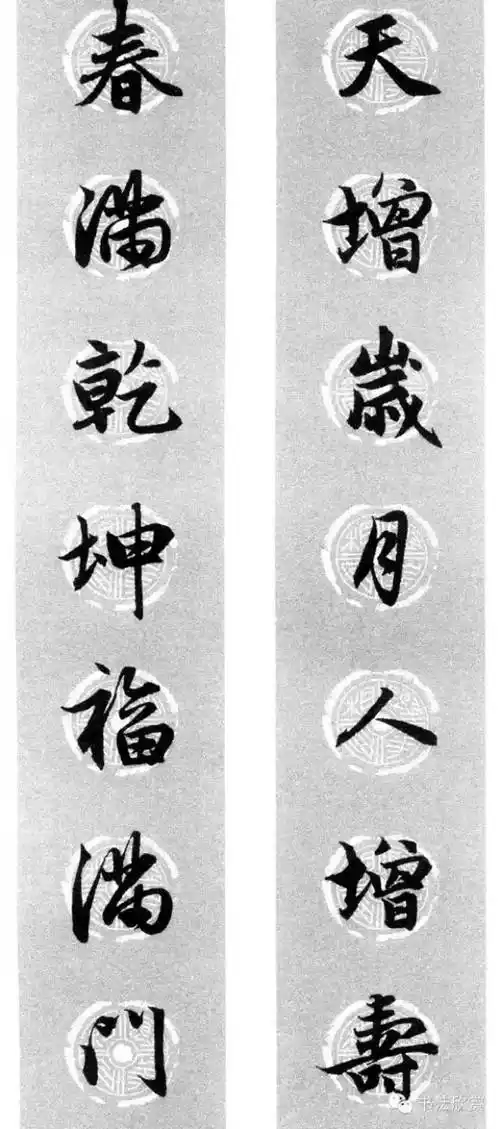 天增歲月人增壽
春滿乾坤福滿門
书法欣赏